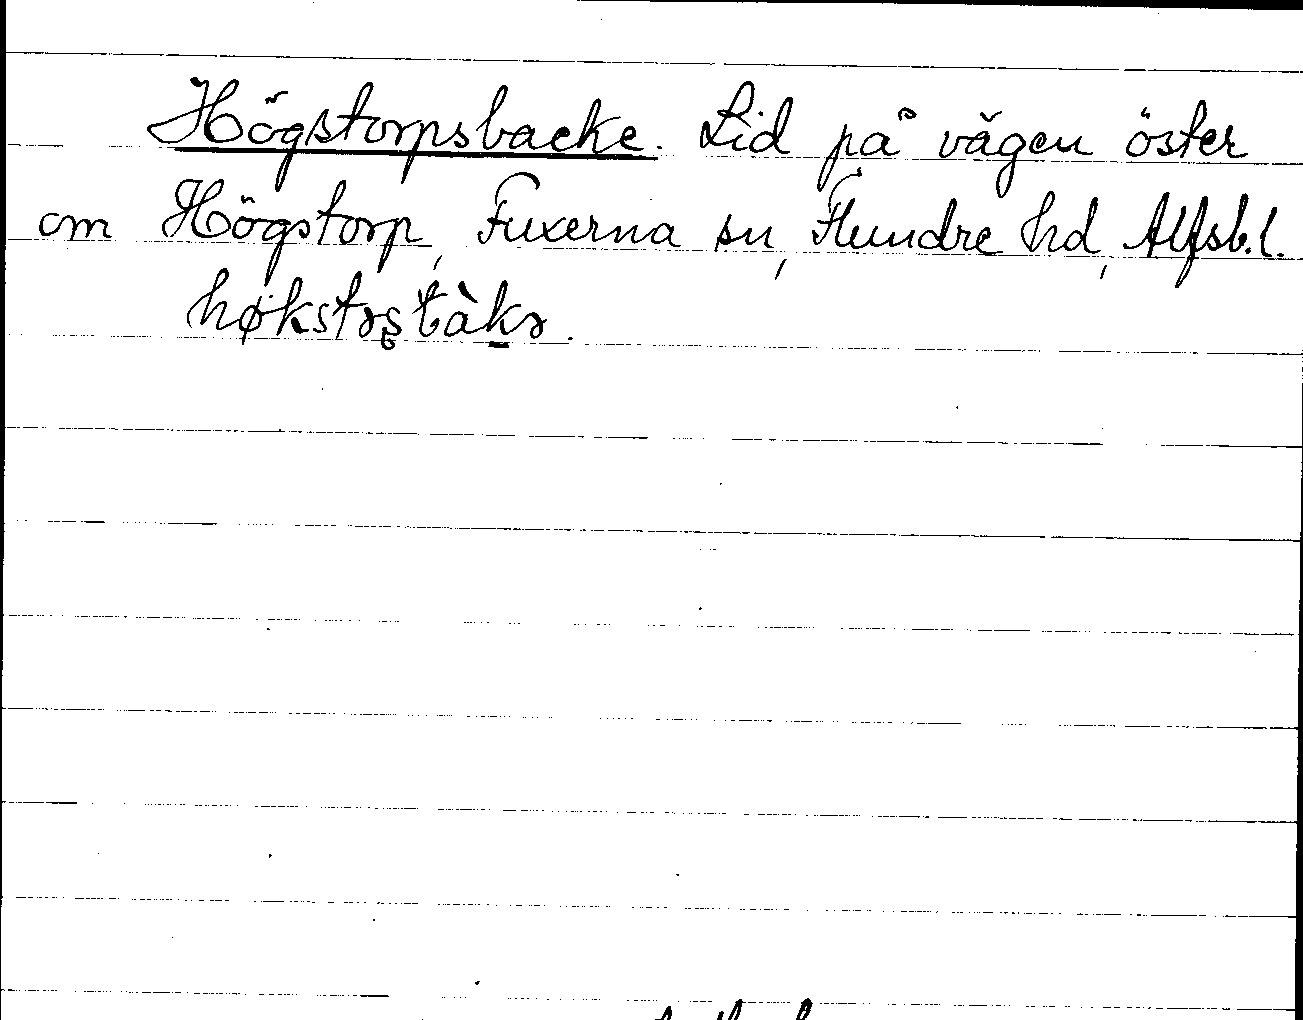 Högstorpsbacke. Lid på vägen öster
om Högstorp, Fuxerna sn, Flundre hd, Älfsb.l.